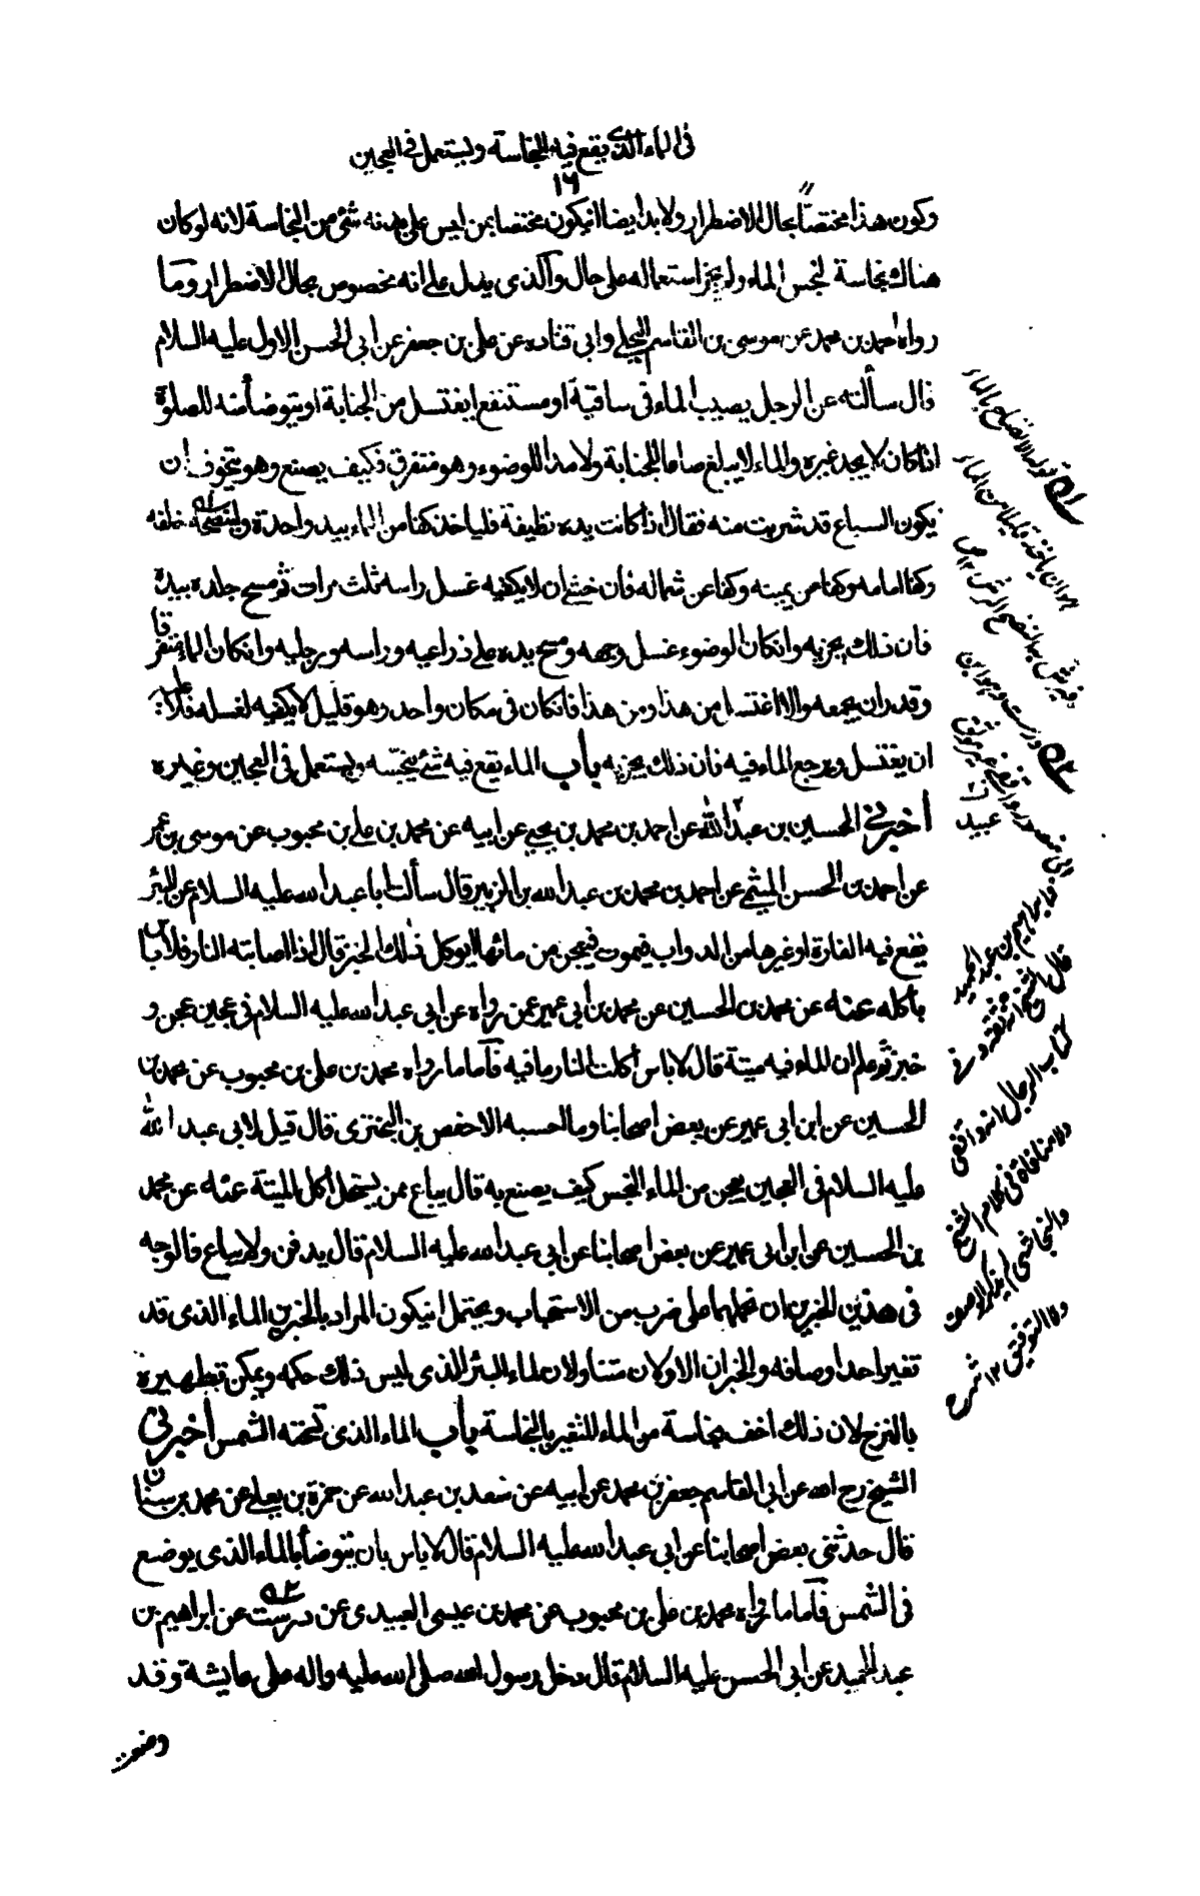 فى الماء الذى يقع فيه النجاسة ويستعمل فى العجين
١٦
وكون هذا مختصّاً بحال الاضطرار ولا بد ايضا انيكون مختصا بمن ليس على بدنه شئ من النجاسة لانه لو كان
هناك نجاسة لنجس الماء ولم يجز استعماله على حال والذى يدل على انه مخصوص بحال الاضطرار وما
رواه احمد بن محمد عن موسى بن القاسم البجلى وابى قتاده عن على بن جعفر عن ابى الحسن الاول عليه السلام
قال سألته عن الرجل يصيب الماء فى ساقية او مستنقع ايغتسل من الجنابة او يتوضأ منه للصلوة
اذا كان لا يجد غيره والماء لا يبلغ صاعا للجنابة ولا مدا للوضوء وهو متفرق فكيف يصنع وهو يتخوف ان
يكون السباع قد شربت منه فقال اذا كانت يده نظيفة فلياخذ كفا من الماء بيد واحدة ولينضحه خلفه
وكفا امامه وكفا عن يمينه وكفا عن شماله فان خشى ان لا يكفيه غسل راسه ثلث مرات ثم مسح جلده بيده
فان ذلك يجزيه وانكان الوضوء غسل وجهه ومسح يده على ذراعيه وراسه ورجليه وانكان الماء متفرقا
وقدر ان يجمعه والا اغتسل من هذا ومن هذا فانكان فى مكان واحد وهو قليل لا يكفيه لغسله فلا عليه
ان يغتسل ويرجع الماء فيه فان ذلك يجزيه باب الماء يقع فيه شئ ينجسه ويستعمل فى العجين وغيره
أخبرنى الحسين بن عبد الله عن احمد بن محمد بن يحيى عن ابيه عن محمد بن على بن محبوب عن موسى بن عمر
عن احمد بن الحسن الميثمى عن احمد بن محمد بن عبد الله بن الزبير قال سألت ابا عبد الله عليه السلام عن البئر
يقع فيه الفارة او غيرها من الدواب فيموت فيعجن من مائها ايوكل ذلك الخبز قال اذا اصابته النار فلا باس
بأكله عنه عن محمد بن الحسين عن محمد بن أبى عمير عمن رواه عن ابى عبد الله عليه السلام فى عجين عجن و
خبز ثم علم ان الماء فيه ميتة قال لا باس أكلت النار ما فيه فأما ما رواه محمد بن على بن محبوب عن محمد بن
الحسين عن ابن ابى عمير عن بعض اصحابنا وما احسبه الا حفص بن البخترى قال قيل لابى عبد الله
عليه السلام فى العجين يعجن من الماء النجس كيف يصنع به قال يباع ممن يستحل اكل الميتة عنه عن محمد
بن الحسين عن ابن ابى عمير عن بعض اصحابنا عن ابى عبد الله عليه السلام قال يدفن ولا يباع فالوجه
فى هذين الخبرين ان نحملهما على ضرب من الاستحباب ويحتمل انيكون المراد بالخبرين الماء الذى قد
تغير احد اوصافه والخبران الاولان متناولان لماء البئر الذى ليس ذلك حكمه ويمكن تطهيره
بالنزح لان ذلك اخف نجاسة من الماء المتغير بالنجاسة باب الماء الذى تسخنه الشمس أخبرنى
الشيخ رحمه الله عن ابى القاسم جعفر بن محمد عن ابيه عن سعد بن عبد الله عن حمزة بن يعلى عن محمد بن سنان
قال حدثنى بعض اصحابنا عن ابى عبد الله عليه السلام قال لا باس بان يتوضأ بالماء الذى يوضع
فى الشمس فأما ما رواه محمد بن على بن محبوب عن محمد بن عيسى العبيدى عن درست عن ابراهيم بن
عبد الحميد عن ابى الحسن عليه السلام قال دخل رسول الله صلى الله عليه واله على عايشة وقد
وضعت
قوله الانضاح بالماء
هو ان ياخذ قليلا من الماء
فيرش به النضح الرش ١٢ ص
درست هو ابن
ابى منصور واقفى غير موثق
عبيد
وابراهيم بن عبد الحميد
قال الشيخ انه ثقة وفى
كتاب الرجال انه واقفى
ولا منافاة فى كلام الشيخ
والنجاشى لم يذكر الوصف
والتوثيق ١٢ شرح